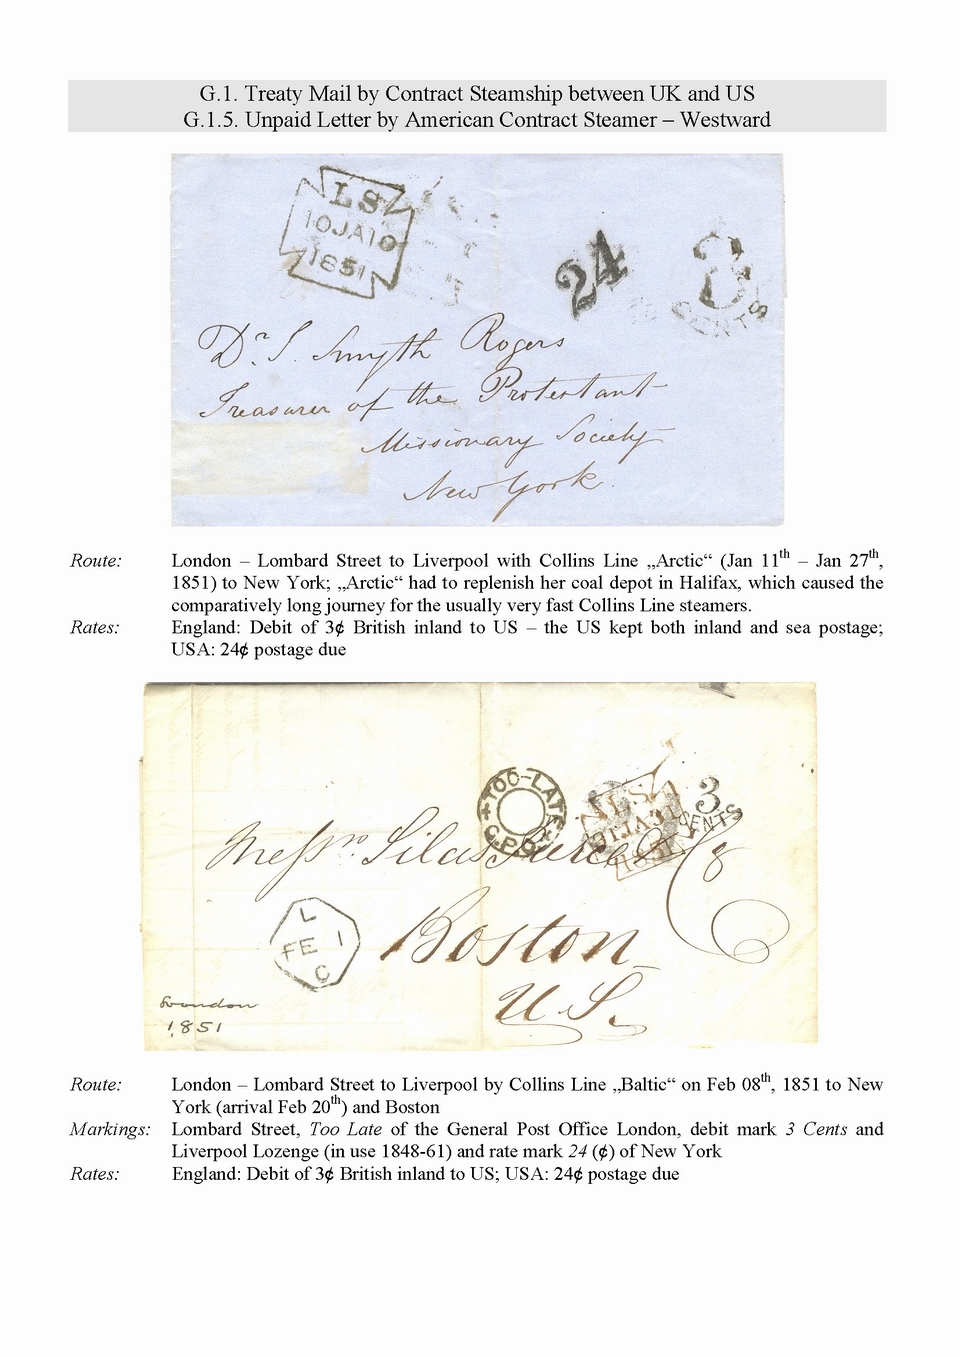 G.1. Treaty Mail by Contract Steamship between UK and US
G.1.5. Unpaid Letter by American Contract Steamer – Westward
LS
10JA10
1851
24
3
CENTS
Dr. J. Smyth Rogers
Treasurer of the Protestant
Missionary Society
New York
Route: London – Lombard Street to Liverpool with Collins Line „Arctic“ (Jan 11th – Jan 27th,
1851) to New York; „Arctic“ had to replenish her coal depot in Halifax, which caused the
comparatively long journey for the usually very fast Collins Line steamers.
Rates: England: Debit of 3¢ British inland to US – the US kept both inland and sea postage;
USA: 24¢ postage due
TOO-LATE
G.P.O
LS
1851
3
CENTS
Messrs. Silas Pierce & Co
L
FE 1
C
Boston
U.S.
London
1851
Route: London – Lombard Street to Liverpool by Collins Line „Baltic“ on Feb 08th, 1851 to New
York (arrival Feb 20th) and Boston
Markings: Lombard Street, Too Late of the General Post Office London, debit mark 3 Cents and
Liverpool Lozenge (in use 1848-61) and rate mark 24 (¢) of New York
Rates: England: Debit of 3¢ British inland to US; USA: 24¢ postage due